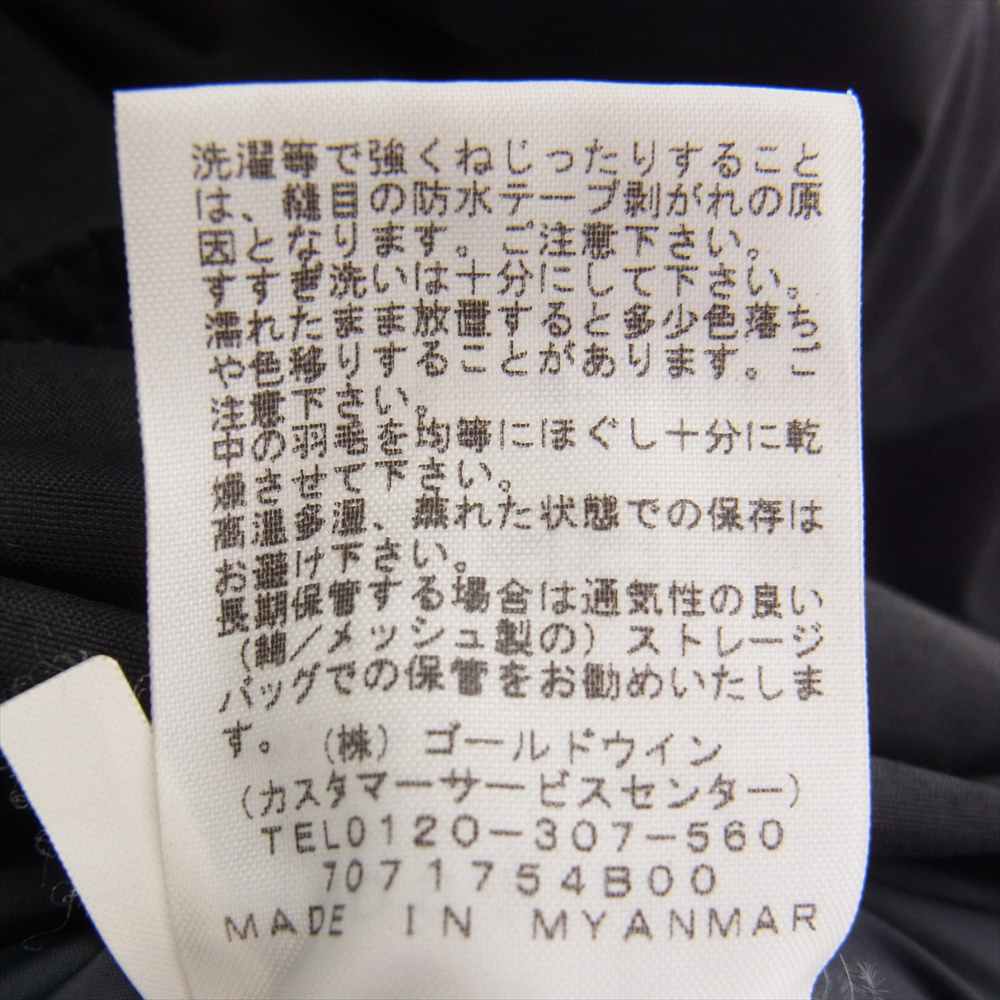 洗濯等で強くねじったりすること
は、縫目の防水テープ剥がれの原
因となります。ご注意下さい。
すすぎ洗いは十分にして下さい。
濡れたまま放置すると多少色落ち
や色移りすることがあります。ご
注意下さい。
中の羽毛を均等にほぐし十分に乾
燥させて下さい。
高温多湿、蒸れた状態での保存は
お避け下さい。
長期保管する場合は通気性の良い
(綿/メッシュ製の)ストレージ
バッグでの保管をお勧めいたしま
す。 (株) ゴールドウイン
(カスタマーサービスセンター)
TEL0120-307-560
7071754B00
MADE IN MYANMAR